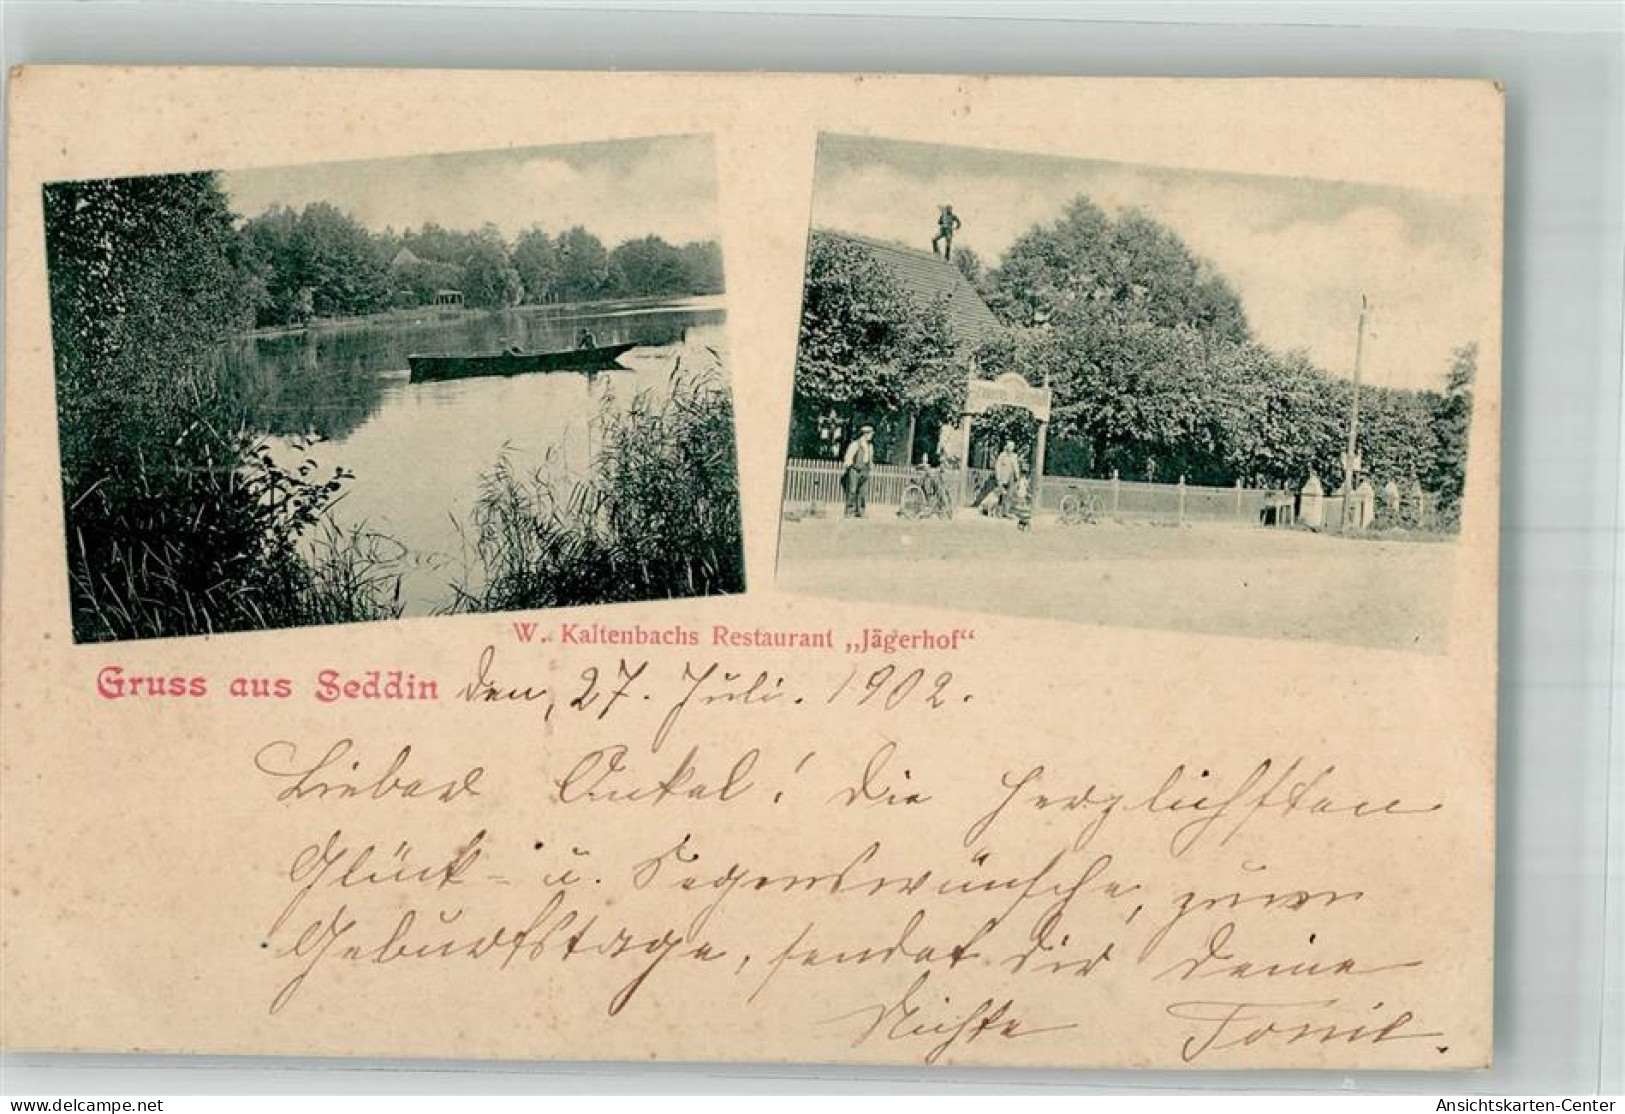 W. Kaltenbachs Restaurant „Jägerhof“
Gruss aus Seddin den, 27. Juli. 1902.
Lieber Onkel! Die herzlichsten
Glück- u. Segenswünsche, zum
Geburtstage, sendet dir deine
Nichte
delcampe.net
Ansichtskarten-Center